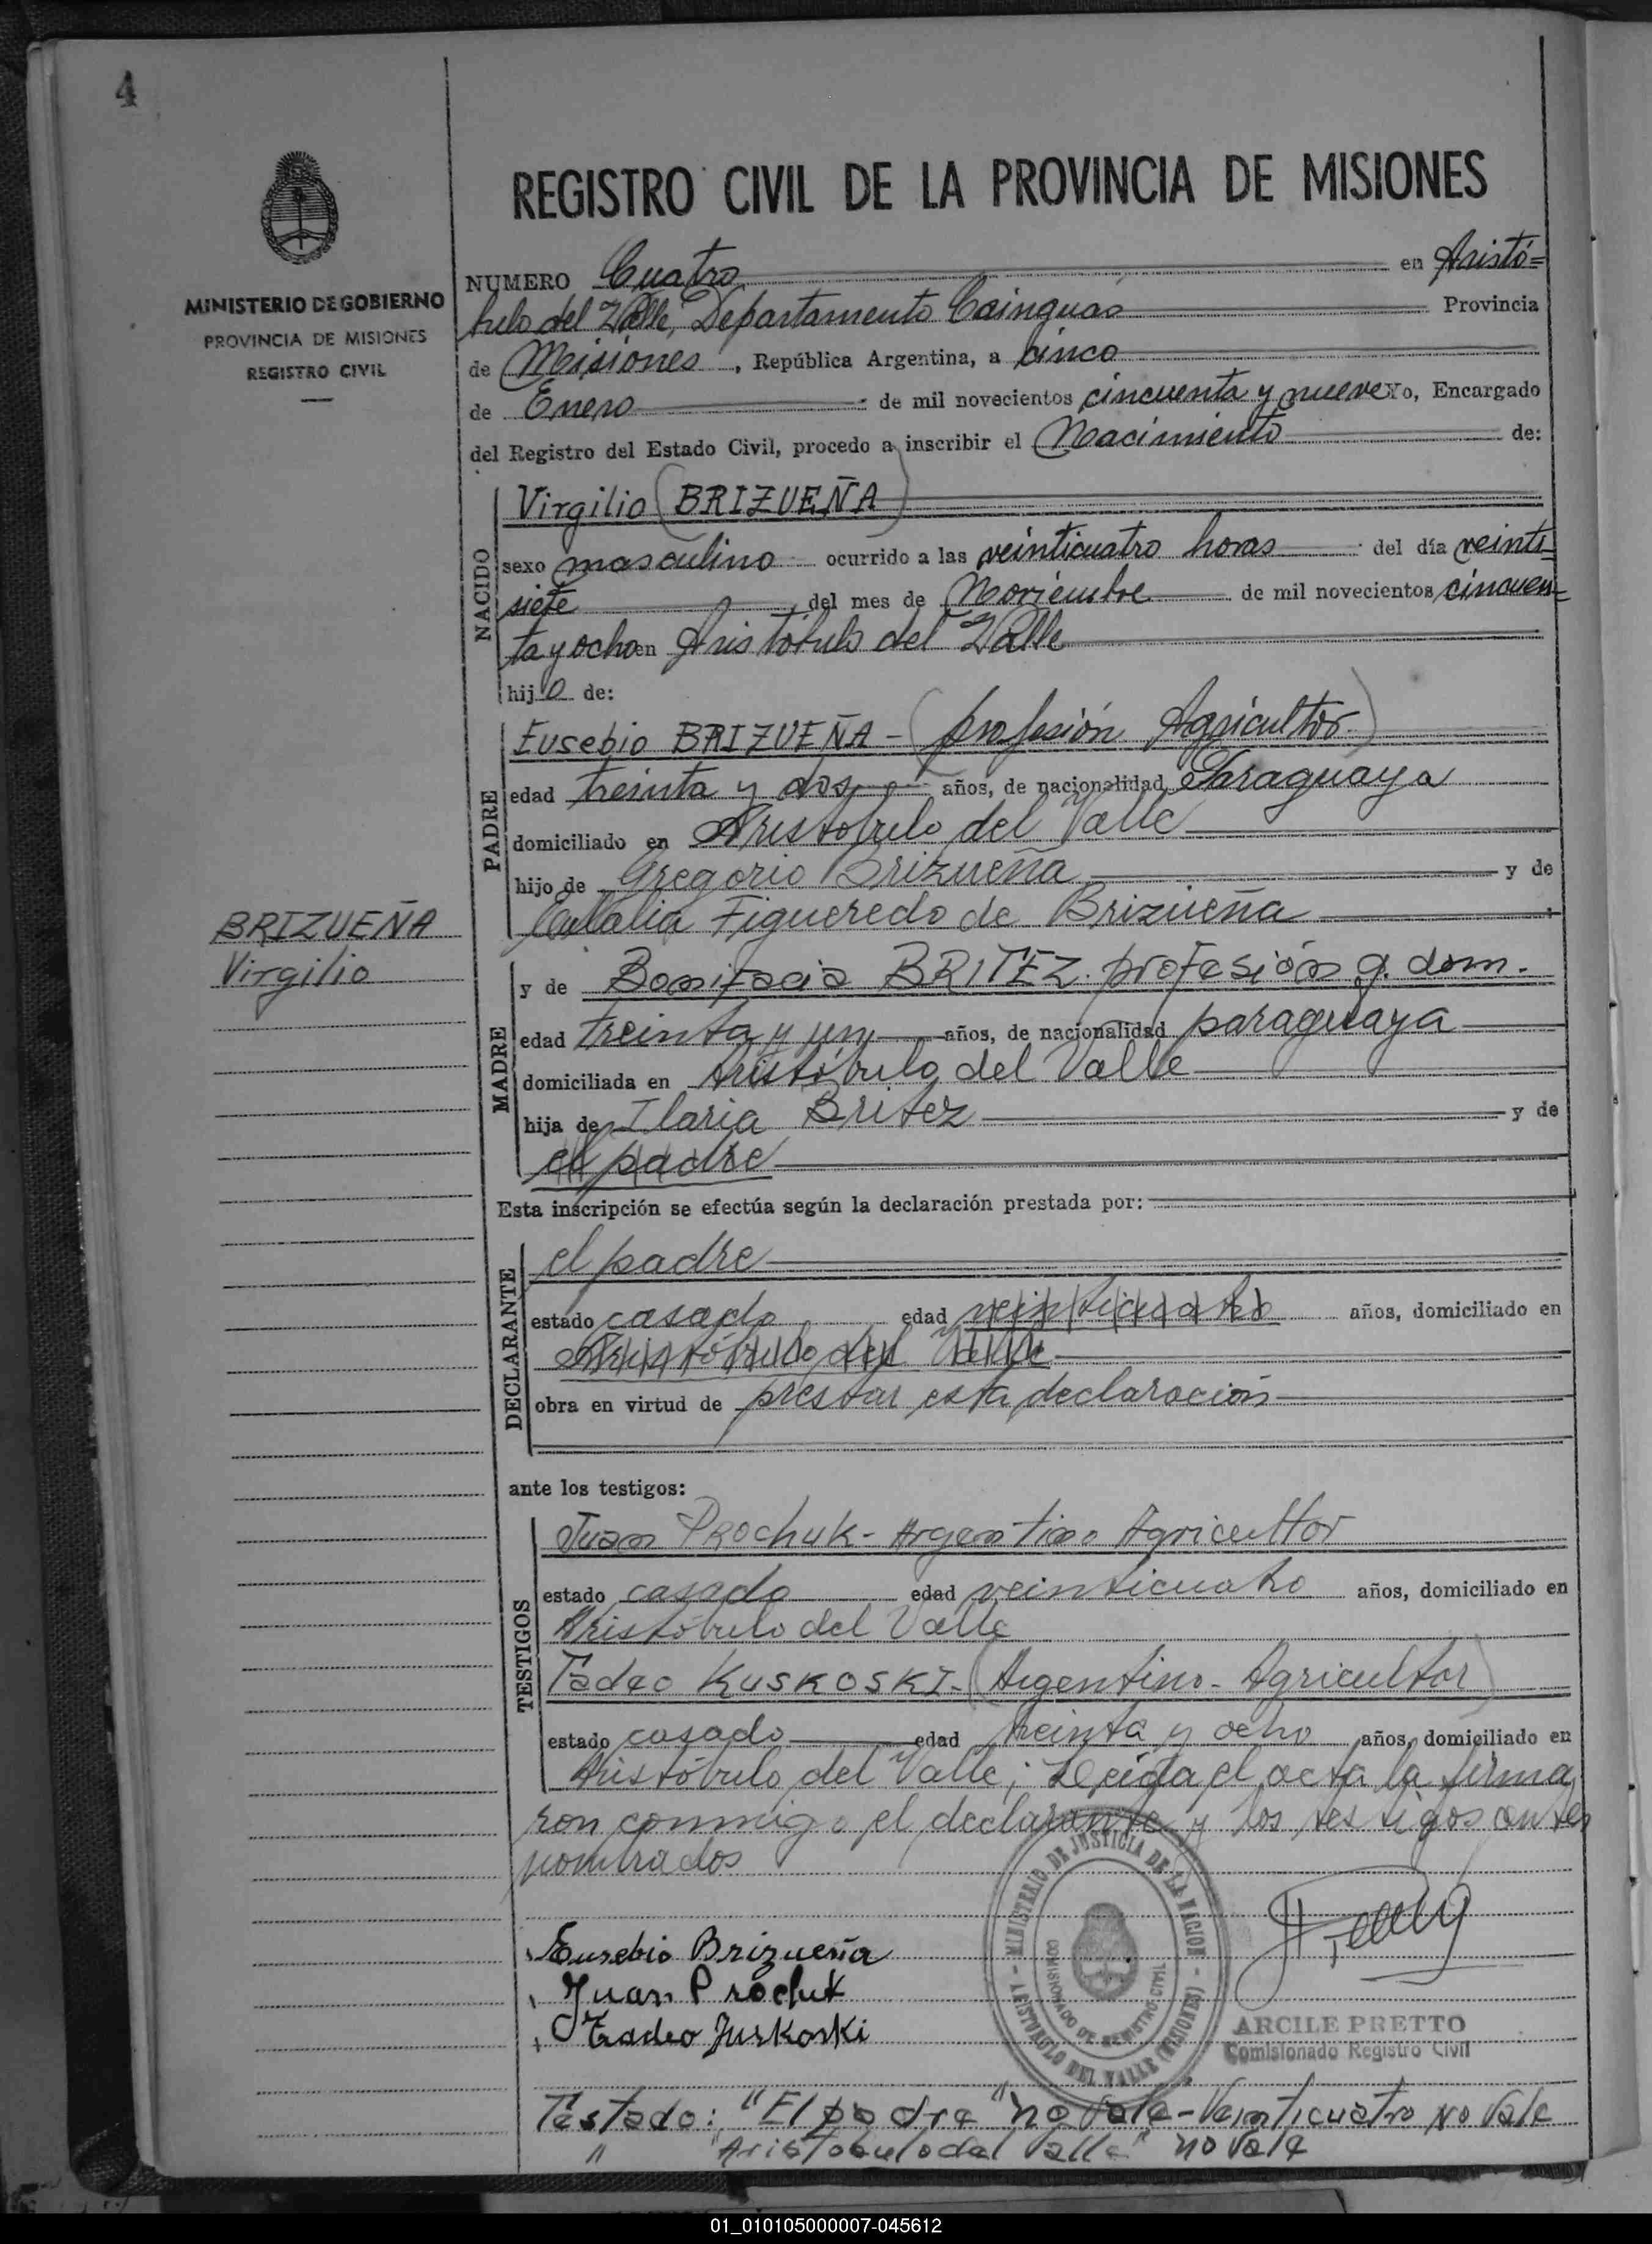 4
MINISTERIO DE GOBIERNO
PROVINCIA DE MISIONES
REGISTRO CIVIL
REGISTRO CIVIL DE LA PROVINCIA DE MISIONES
NUMERO Cuatro en Aristó=
bulo del Valle, Departamento Cainguás Provincia
de Misiones, República Argentina, a cinco
de Enero de mil novecientos cincuenta y nueve Yo, Encargado
del Registro del Estado Civil, procedo a inscribir el Nacimiento de:
NACIDO
Virgilio (BRIZUEÑA)
sexo masculino ocurrido a las veinticuatro horas del día veinti=
siete, del mes de Noviembre de mil novecientos cincuen=
ta y ocho en Aristóbulo del Valle
hijo de:
PADRE
Eusebio BRIZUEÑA - (profesión Agricultor.)
edad treinta y dos años, de nacionalidad Paraguaya
domiciliado en Aristobulo del Valle
hijo de Gregorio Brizueña y de
Figueredo de Brizueña
BRIZUEÑA
Virgilio
MADRE
y de Bonifacia BRITEZ. profesión q. dom.
edad treinta y un años, de nacionalidad paraguaya
domiciliada en Aristóbulo del Valle
hija de Ilaria Britez y de
el padre
Esta inscripción se efectúa según la declaración prestada por:
DECLARANTE
el padre
estado casado edad veinticuatro años, domiciliado en
Aristóbulo del Valle
obra en virtud de prestar esta declaración
ante los testigos:
TESTIGOS
Juan PROchuk - Argentino Agricultor
estado casado edad veinticuatro años, domiciliado en
Aristóbulo del Valle
Tadeo KUSKOSKI - (Argentino - Agricultor)
estado casado edad treinta y ocho años, domiciliado en
Aristóbulo del Valle; Leída el acta la firma
ron conmigo el declarante y los testigos antes
nombrados
MINISTERIO DE JUSTICIA DE LA NACION - ARISTOBULO DEL VALLE (MISIONES) -
COMISIONADO DE REGISTRO CIVIL
Eusebio Brizueña
Juan Prochuk
Tadeo Juskoski
ARCILE PRETTO
Comisionado Registro Civil
Testado: "El padre" no vale - Veinticuatro No Vale
" "Aristobulo del Valle" no vale
01_010105000007-045612